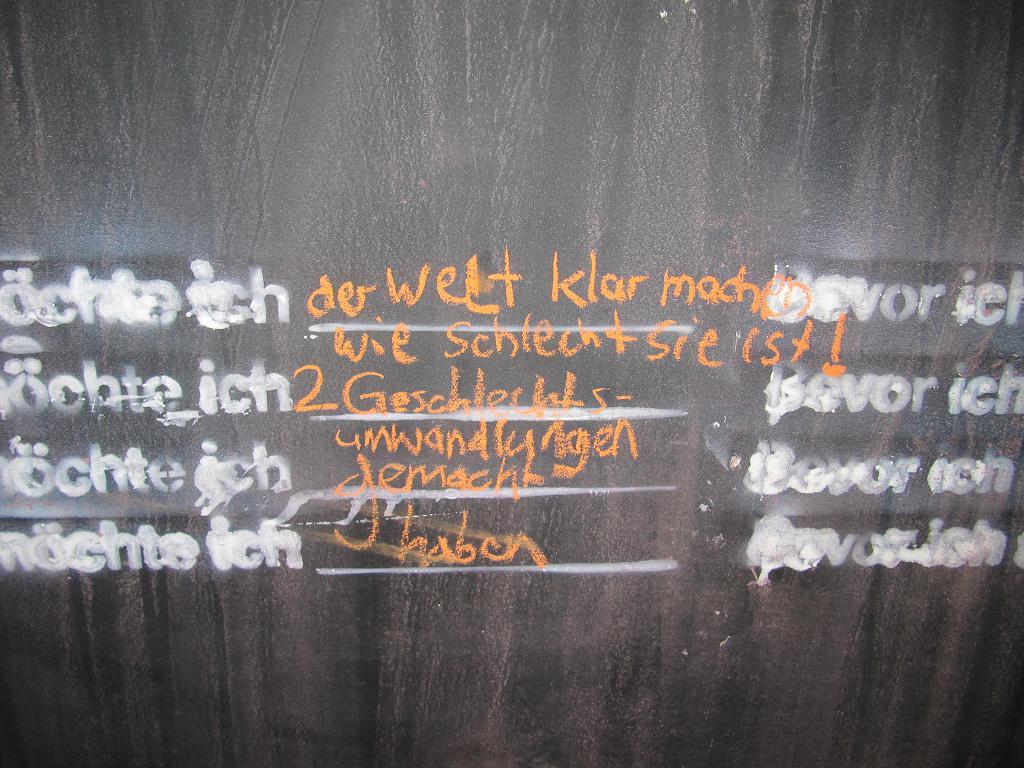 öchte ich der Welt klar machen Bevor ich
wie schlecht sie ist!
öchte ich 2 Geschlechts- Bevor ich
umwandlungen
möchte ich gemacht Bevor ich
möchte ich haben Bevor ich